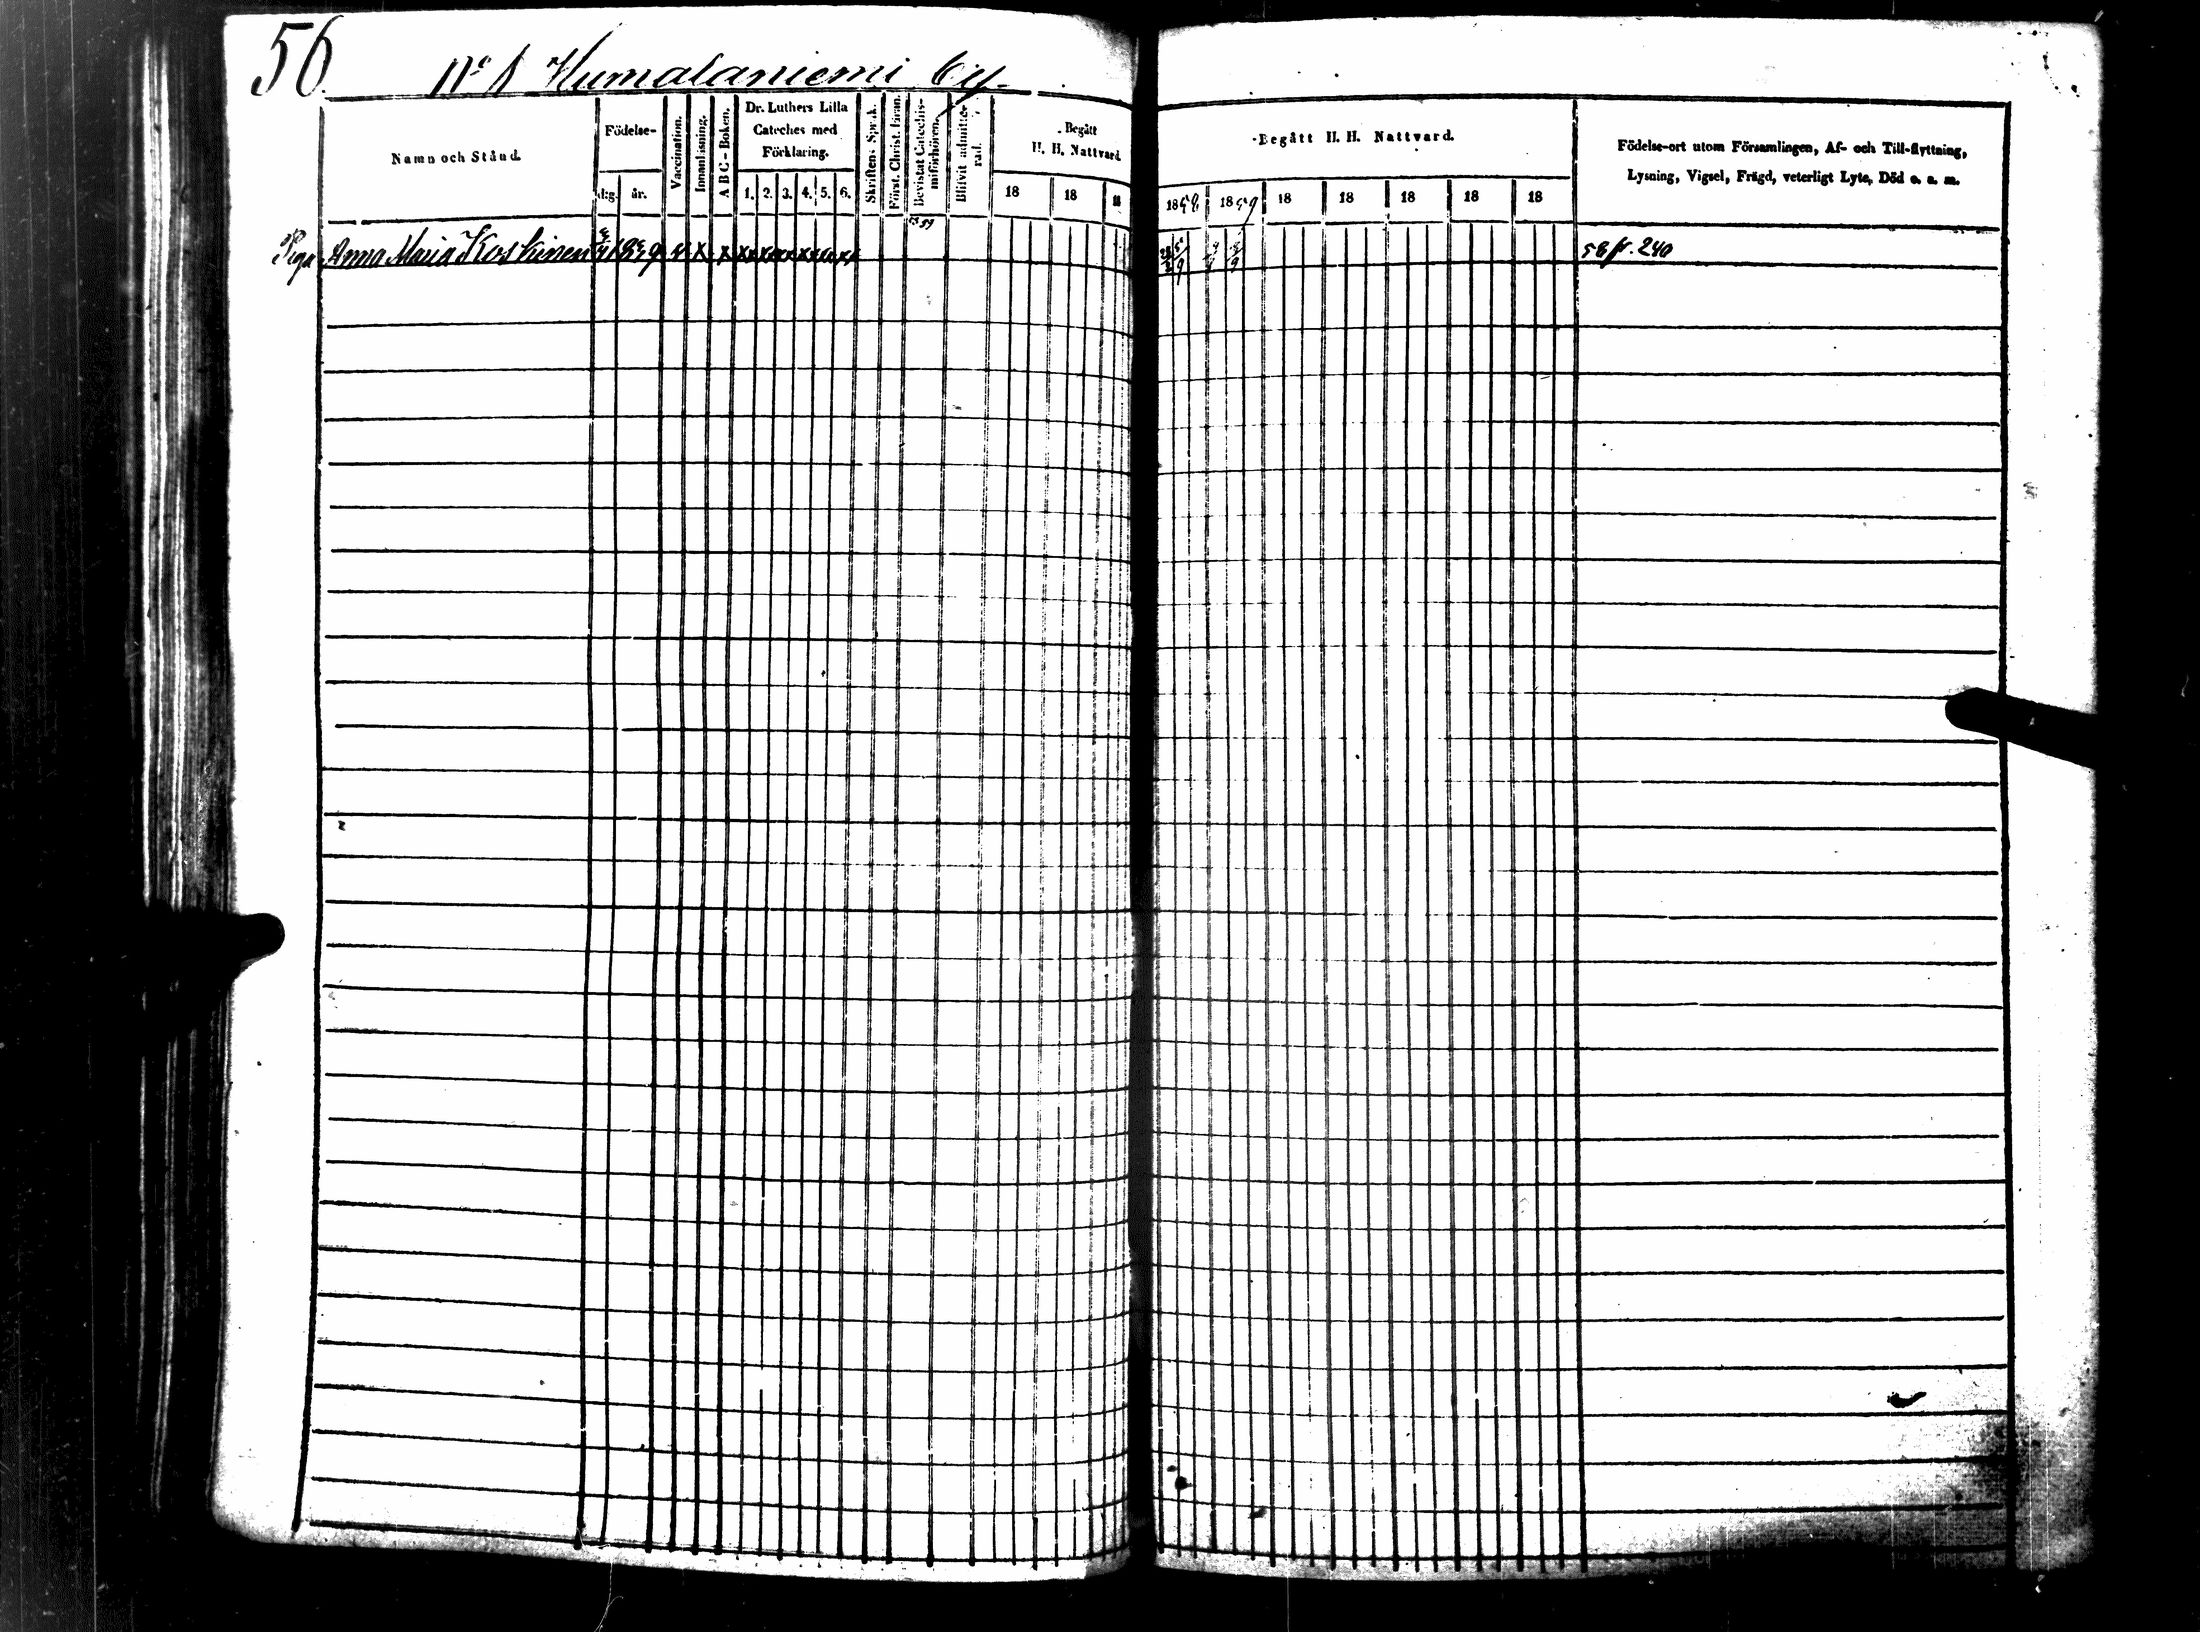 56
N:o 1 Humalaniemi by.
Namn och Stånd.
Födelse-
dag.
år.
Vaccination.
Innanläsning.
A B C - Boken.
Dr. Luthers Lilla
Cateches med
Förklaring.
1. 2. 3. 4. 5. 6.
Skriftens Språk.
Först. Christ. läran.
Bevistat Catechis-
miförhören.
Blifvit admitte-
rad.
Begått
H. H. Nattvard.
18 18 18
Begått H. H. Nattvard.
1858 1859 18 18 18 18 18
Födelse-ort utom Församlingen, Af- och Till-flyttning,
Lysning, Vigsel, Frägd, veterligt Lyte, Död o. s. m.
Piga Anna Maria Koskinen
58 fr. 240